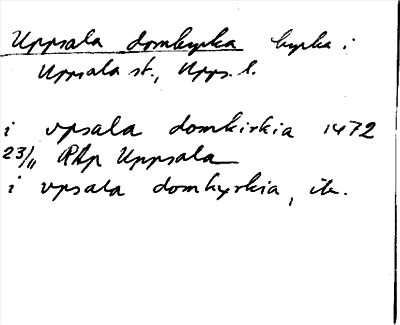 Uppsala domkyrka kyrka i
Uppsala st., Upps. l.
i vpsala domkirkia 1472
23/11 RAp Uppsala
i vpsala domkyrkia, ib.